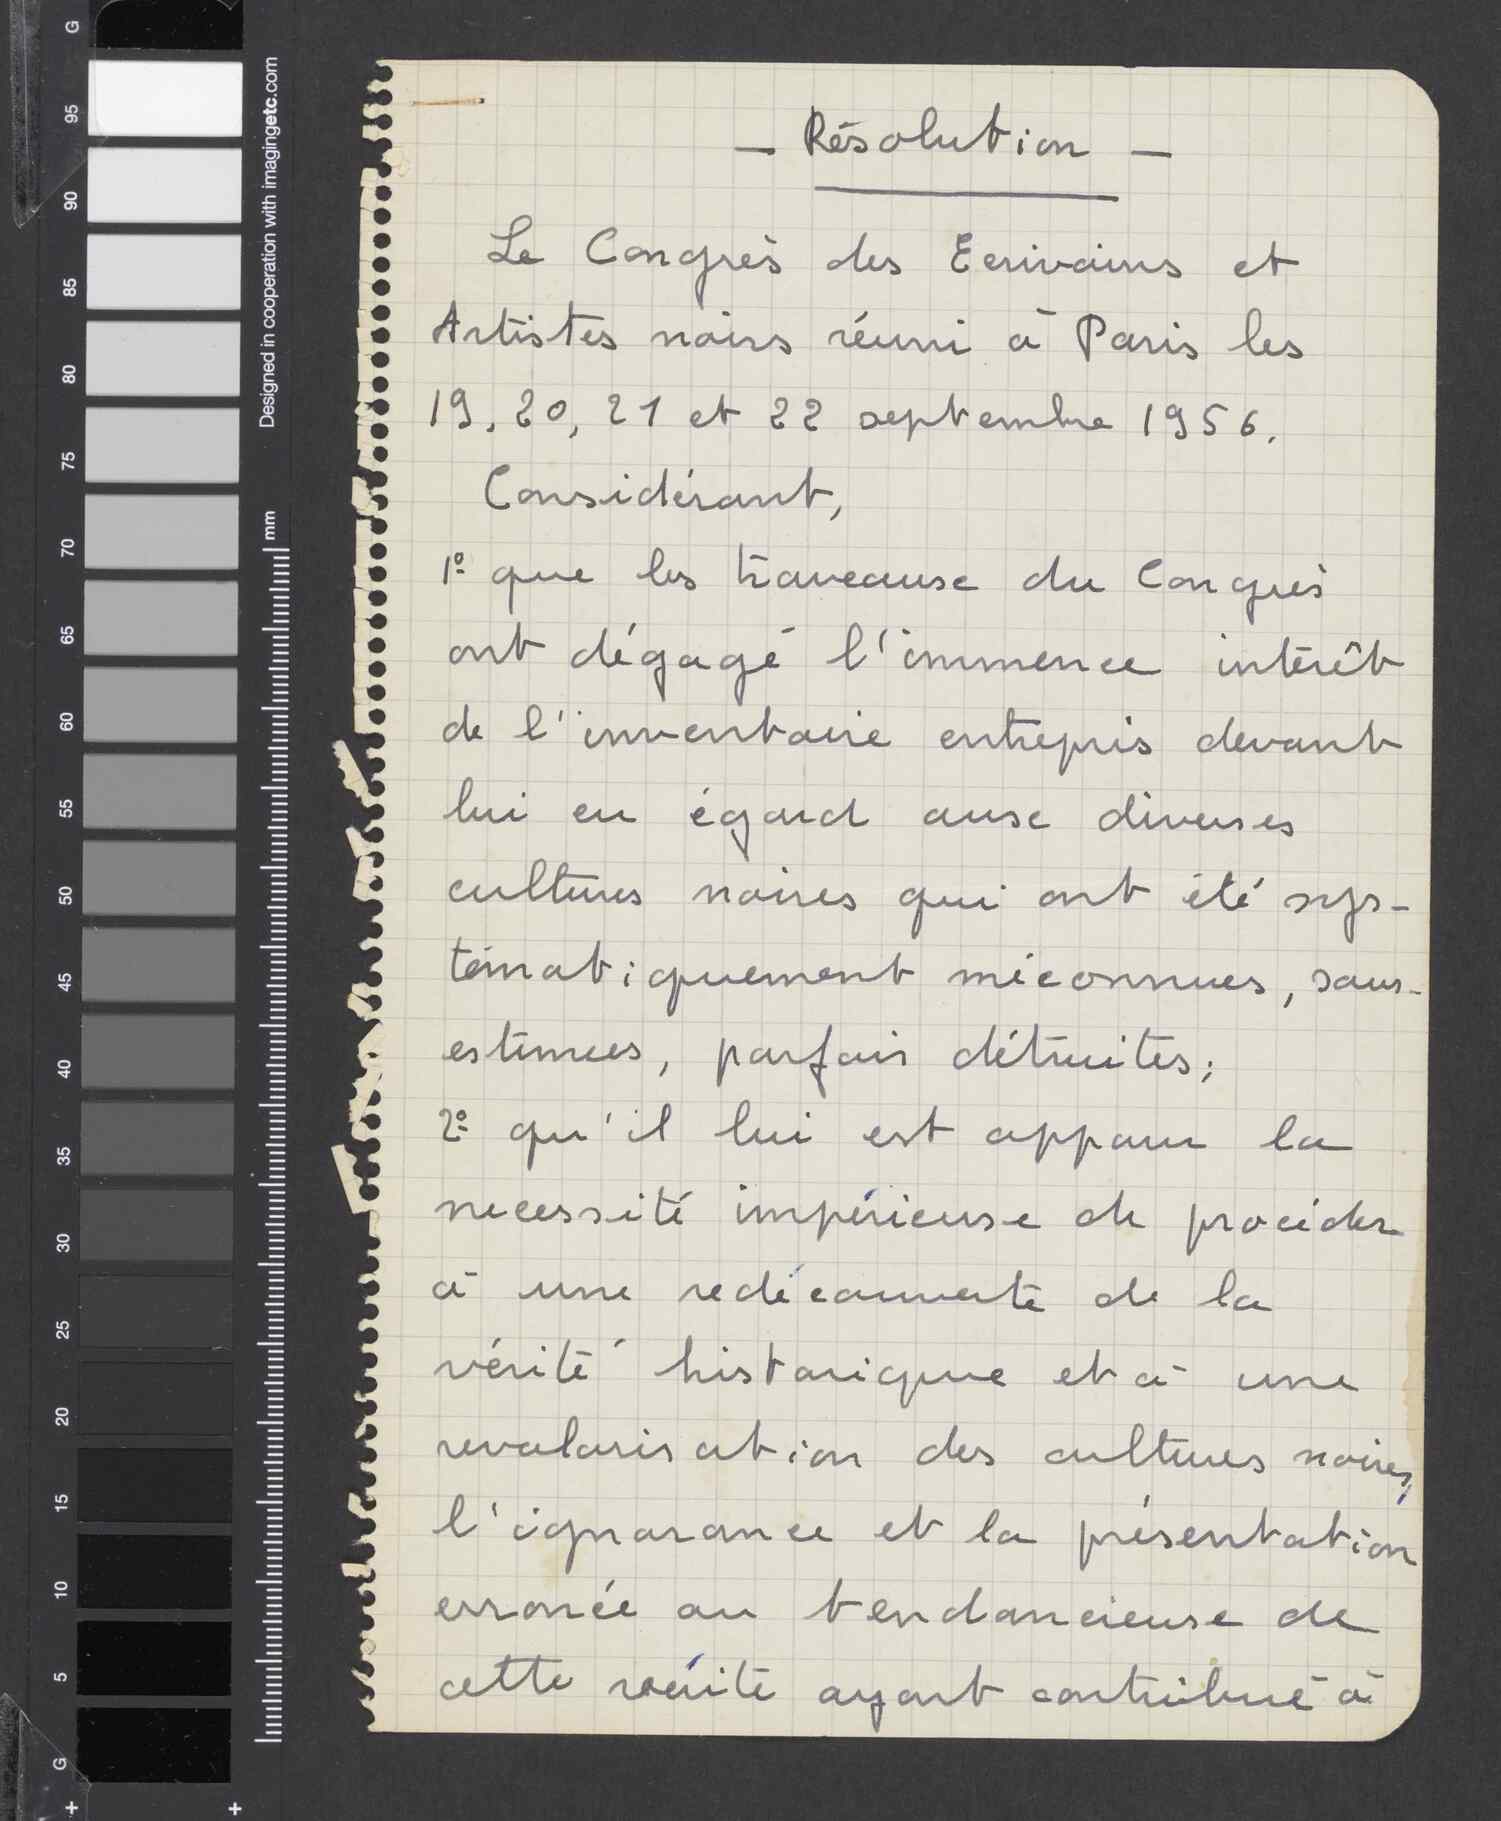 — Résolution —
Le Congrès des Ecrivains et
Artistes noirs réuni à Paris les
19, 20, 21 et 22 septembre 1956.
Considérant,
1º que les traveaux du Congrès
ont dégagé l'immence intérêt
de l'inventaire entrepris devant
lui eu égard aux diverses
cultures noires qui ont été sys-
tématiquement méconnues, sous-
estimées, parfois détruites;
2º qu'il lui est apparu la
necessité impérieuse de procéder
à une redécouverte de la
vérité historique et à une
revalorisation des cultures noires,
l'ignorance et la présentation
erronée ou tendancieuse de
cette vérité ayant contribué à
G
95
90
85
80
75
70
65
60
55
50
45
40
35
30
25
20
15
10
5
G
Designed in cooperation with imagingetc.com
mm